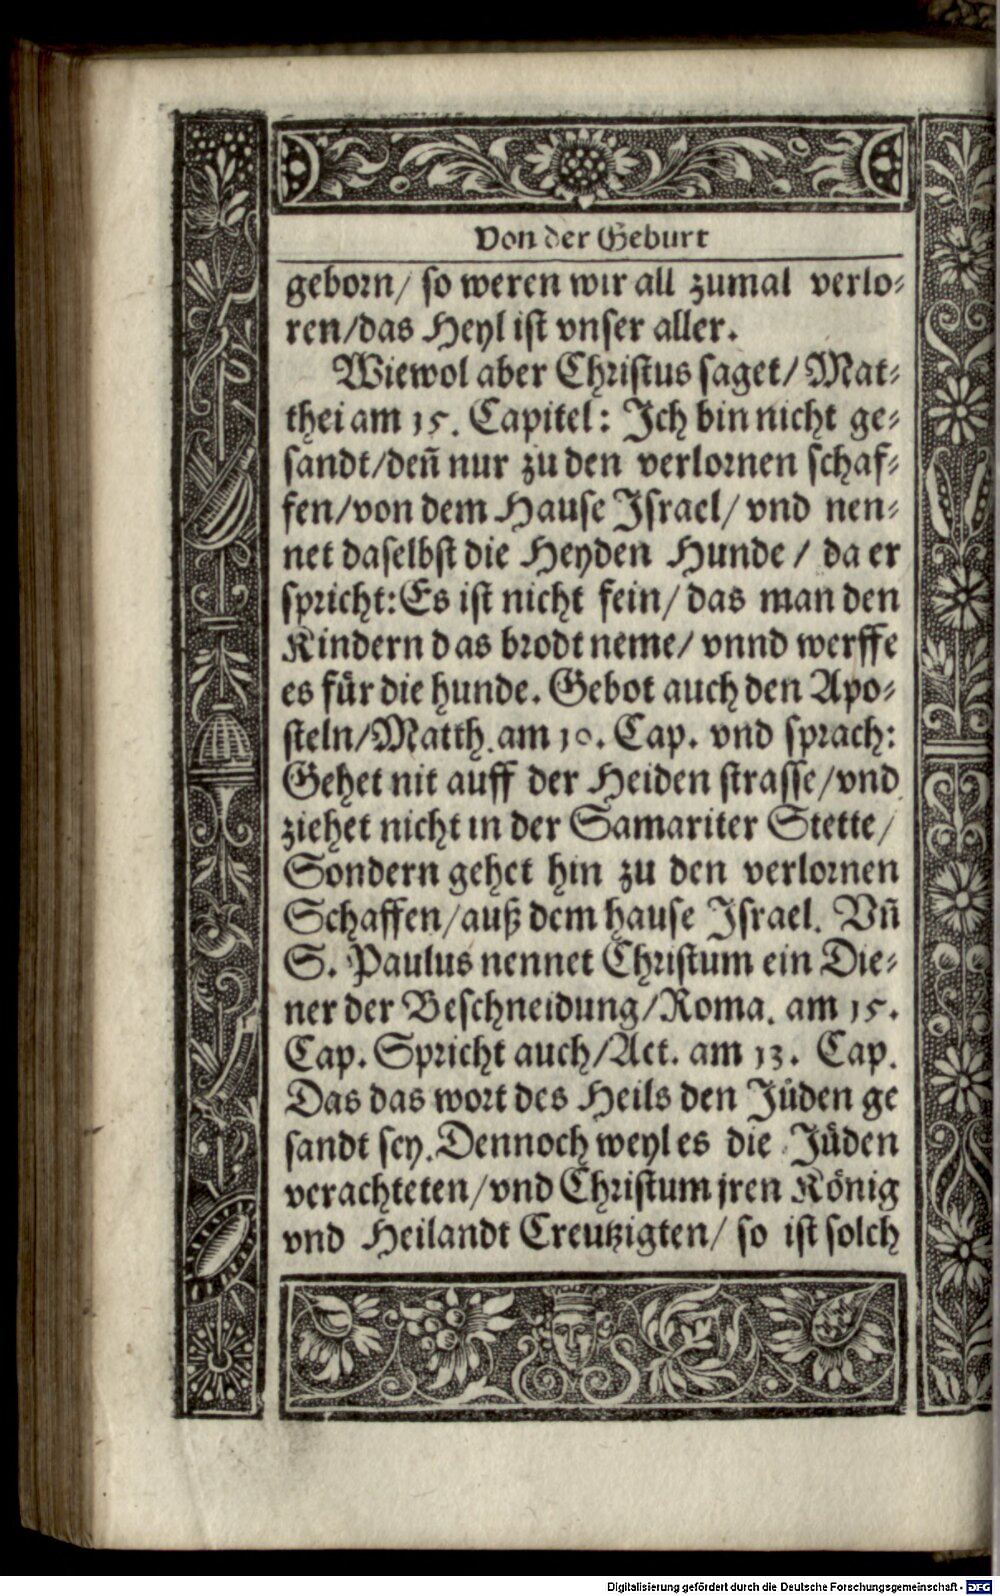 Von der Geburt
geborn/ so weren wir all zumal verlo-
ren/das Heyl ist vnser aller.
Wiewol aber Christus saget/ Mat-
thei am 15. Capitel: Ich bin nicht ge-
sandt/deñ nur zu den verlornen schaf-
fen/von dem Hause Israel/ vnd nen-
net daselbst die Heyden Hunde/ da er
spricht: Es ist nicht fein/ das man den
Kindern das brodt neme/ vnnd werffe
es für die hunde. Gebot auch den Apo-
steln/Matth. am 10. Cap. vnd sprach:
Gehet nit auff der Heiden strasse/vnd
ziehet nicht in der Samariter Stette/
Sondern gehet hin zu den verlornen
Schaffen/auß dem hause Israel. Vñ
S. Paulus nennet Christum ein Die-
ner der Beschneidung/Roma. am 15.
Cap. Spricht auch/Act. am 13. Cap.
Das das wort des Heils den Jüden ge
sandt sey. Dennoch weyl es die Jüden
verachteten/vnd Christum jren König
vnd Heilandt Creutzigten/ so ist solch
Digitalisierung gefördert durch die Deutsche Forschungsgemeinschaft - DFG